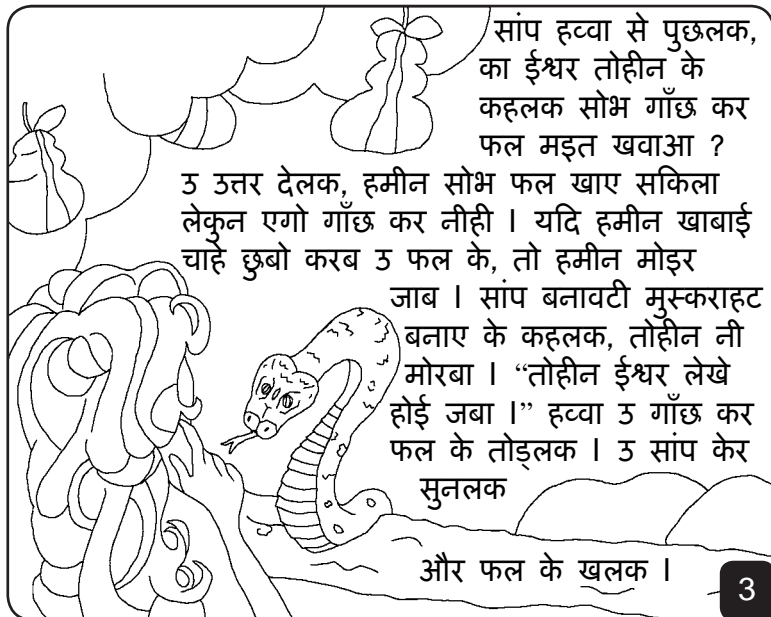 सांप हव्वा से पुछलक,
का ईश्वर तोहीन के
कहलक सोभ गाँछ कर
फल मइत खवाआ ?
उ उत्तर देलक, हमीन सोभ फल खाए सकिला
लेकुन एगो गाँछ कर नीही । यदि हमीन खाबाई
चाहे छुबो करब उ फल के, तो हमीन मोइर
जाब । सांप बनावटी मुस्कराहट
बनाए के कहलक, तोहीन नी
मोरबा । “तोहीन ईश्वर लेखे
होई जबा ।” हव्वा उ गाँछ कर
फल के तोड़लक । उ सांप केर
सुनलक
और फल के खलक ।
3